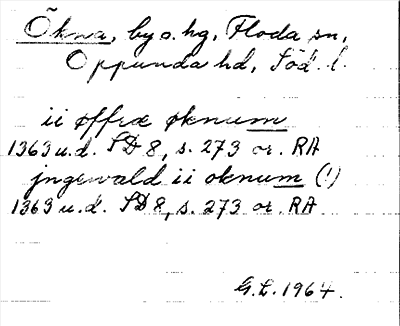 Ökna, by o. hg, Floda sn,
Oppunda hd, Söd. l.
ii øffræ øknum
1363 u.d. SD 8, s. 273 or. RA
jngewald ii oknum (!)
1363 u.d. SD 8, s. 273 or. RA
G.L. 1964.